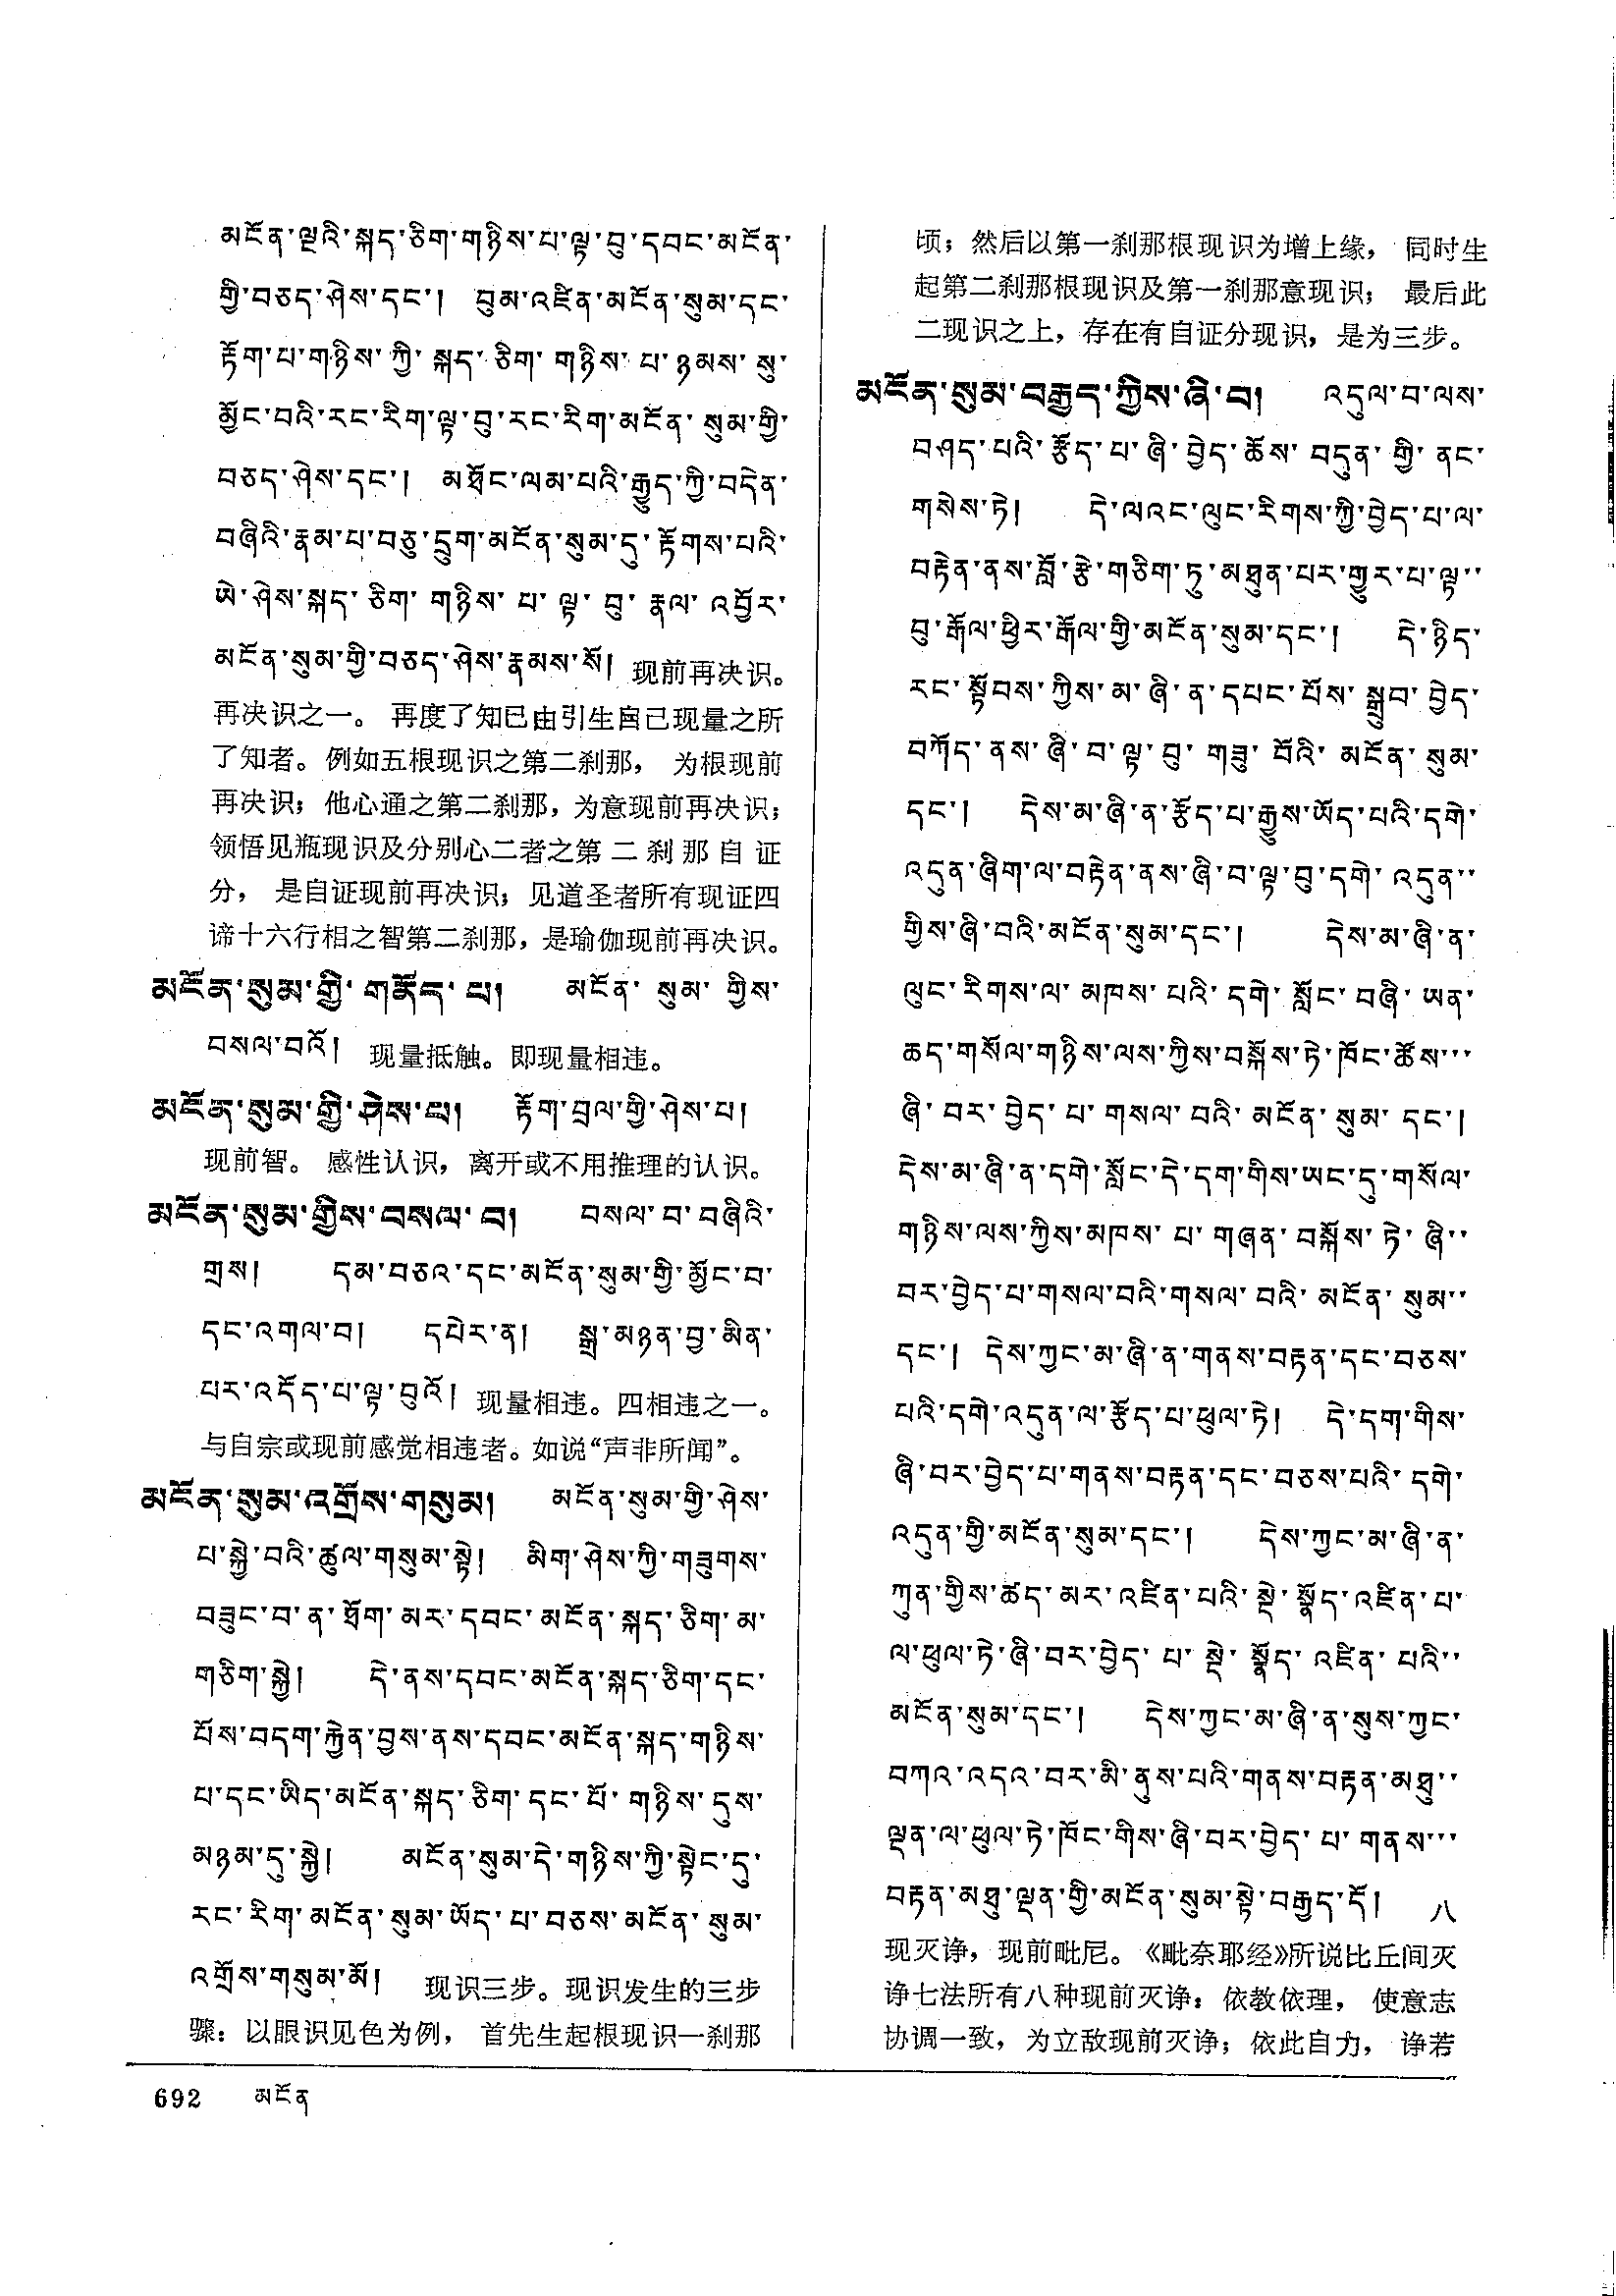 མངོན་ལྔའི་སྐད་ཅིག་གཉིས་པ་ལྟ་བུ་དབང་མངོན་
གྱི་བཅད་ཤེས་དང་། བུམ་འཛིན་མངོན་སུམ་དང་
རྟོག་པ་གཉིས་ཀྱི་སྐད་ཅིག་གཉིས་པ་ཉམས་སུ་
མྱོང་བའི་རང་རིག་ལྟ་བུ་རང་རིག་མངོན་སུམ་གྱི་
བཅད་ཤེས་དང་། མཐོང་ལམ་པའི་རྒྱུད་ཀྱི་བདེན་
བཞིའི་རྣམ་པ་བཅུ་དྲུག་མངོན་སུམ་དུ་རྟོགས་པའི་
ཡེ་ཤེས་སྐད་ཅིག་གཉིས་པ་ལྟ་བུ་རྣལ་འབྱོར་
མངོན་སུམ་གྱི་བཅད་ཤེས་རྣམས་སོ། 现前再决识。
再决识之一。 再度了知已由引生自己现量之所
了知者。例如五根现识之第二刹那， 为根现前
再决识；他心通之第二刹那，为意现前再决识；
领悟见瓶现识及分别心二者之第二刹那自证
分， 是自证现前再决识；见道圣者所有现证四
谛十六行相之智第二刹那，是瑜伽现前再决识。
མངོན་སུམ་གྱི་གནོད་པ། མངོན་སུམ་གྱིས་
བསལ་བའོ། 现量抵触。即现量相违。
མངོན་སུམ་གྱི་ཤེས་པ། རྟོག་བྲལ་གྱི་ཤེས་པ།
现前智。 感性认识，离开或不用推理的认识。
མངོན་སུམ་གྱིས་བསལ་བ། བསལ་བ་བཞིའི་
གྲས། དམ་བཅའ་དང་མངོན་སུམ་གྱི་མྱོང་བ་
དང་འགལ་བ། དཔེར་ན། སྒྲ་མཉན་བྱ་མིན་
པར་འདོད་པ་ལྟ་བུའོ། 现量相违。四相违之一。
与自宗或现前感觉相违者。如说“声非所闻”。
མངོན་སུམ་འགྲོས་གསུམ། མངོན་སུམ་གྱི་ཤེས་
པ་སྐྱེ་བའི་ཚུལ་གསུམ་སྟེ། མིག་ཤེས་ཀྱི་གཟུགས་
བཟུང་བ་ན་ཐོག་མར་དབང་མངོན་སྐད་ཅིག་མ་
གཅིག་སྐྱེ། དེ་ནས་དབང་མངོན་སྐད་ཅིག་དང་
པོས་བདག་རྐྱེན་བྱས་ནས་དབང་མངོན་སྐད་གཉིས་
པ་དང་ཡིད་མངོན་སྐད་ཅིག་དང་པོ་གཉིས་དུས་
མཉམ་དུ་སྐྱེ། མངོན་སུམ་དེ་གཉིས་ཀྱི་སྟེང་དུ་
རང་རིག་མངོན་སུམ་ཡོད་པ་བཅས་མངོན་སུམ་
འགྲོས་གསུམ་མོ། 现识三步。现识发生的三步
骤：以眼识见色为例， 首先生起根现识一刹那
顷；然后以第一刹那根现识为增上缘， 同时生
起第二刹那根现识及第一刹那意现识； 最后此
二现识之上，存在有自证分现识，是为三步。
མངོན་སུམ་བརྒྱད་ཀྱིས་ཞི་བ། འདུལ་བ་ལས་
བཤད་པའི་རྩོད་པ་ཞི་བྱེད་ཆོས་བདུན་གྱི་ནང་
གསེས་ཏེ། དེ་ལའང་ལུང་རིགས་ཀྱི་བྱེད་པ་ལ་
བརྟེན་ནས་བློ་རྩེ་གཅིག་ཏུ་མཐུན་པར་གྱུར་པ་ལྟ་་
བུ་རྒོལ་ཕྱིར་རྒོལ་གྱི་མངོན་སུམ་དང་། དེ་ཉིད་
རང་སྟོབས་ཀྱིས་མ་ཞི་ན་དཔང་པོས་སྒྲུབ་བྱེད་
བཀོད་ནས་ཞི་བ་ལྟ་བུ་གཟུ་བོའི་མངོན་སུམ་
དང་། དེས་མ་ཞི་ན་རྩོད་པ་རྒྱུས་ཡོད་པའི་དགེ་
འདུན་ཞིག་ལ་བརྟེན་ནས་ཞི་བ་ལྟ་བུ་དགེ་འདུན་་
གྱིས་ཞི་བའི་མངོན་སུམ་དང་། དེས་མ་ཞི་ན་
ལུང་རིགས་ལ་མཁས་པའི་དགེ་སློང་བཞི་ཡན་
ཆད་གསོལ་གཉིས་ལས་ཀྱིས་བསྐོས་ཏེ་ཁོང་ཚོས་་་
ཞི་བར་བྱེད་པ་གསལ་བའི་མངོན་སུམ་དང་།
དེས་མ་ཞི་ན་དགེ་སློང་དེ་དག་གིས་ཡང་དུ་གསོལ་
གཉིས་ལས་ཀྱིས་མཁས་པ་གཞན་བསྐོས་ཏེ་ཞི་་
བར་བྱེད་པ་གསལ་བའི་གསལ་བའི་མངོན་སུམ་་
དང་། དེས་ཀྱང་མ་ཞི་ན་གནས་བརྟན་དང་བཅས་
པའི་དགེ་འདུན་ལ་རྩོད་པ་ཕུལ་ཏེ། དེ་དག་གིས་
ཞི་བར་བྱེད་པ་གནས་བརྟན་དང་བཅས་པའི་དགེ་
འདུན་གྱི་མངོན་སུམ་དང་། དེས་ཀྱང་མ་ཞི་ན་
ཀུན་གྱིས་ཚད་མར་འཛིན་པའི་སྡེ་སྣོད་འཛིན་པ་
ལ་ཕུལ་ཏེ་ཞི་བར་བྱེད་པ་སྡེ་སྣོད་འཛིན་པའི་་
མངོན་སུམ་དང་། དེས་ཀྱང་མ་ཞི་ན་སུས་ཀྱང་
བཀའ་འདའ་བར་མི་ནུས་པའི་གནས་བརྟན་མཐུ་་
ལྡན་ལ་ཕུལ་ཏེ་ཁོང་གིས་ཞི་བར་བྱེད་པ་གནས་་་
བརྟན་མཐུ་ལྡན་གྱི་མངོན་སུམ་སྟེ་བརྒྱད་དོ། 八
现灭诤，现前毗尼。《毗奈耶经》所说比丘间灭
诤七法所有八种现前灭诤：依教依理， 使意志
协调一致，为立敌现前灭诤；依此自力， 诤若
692 མངོན